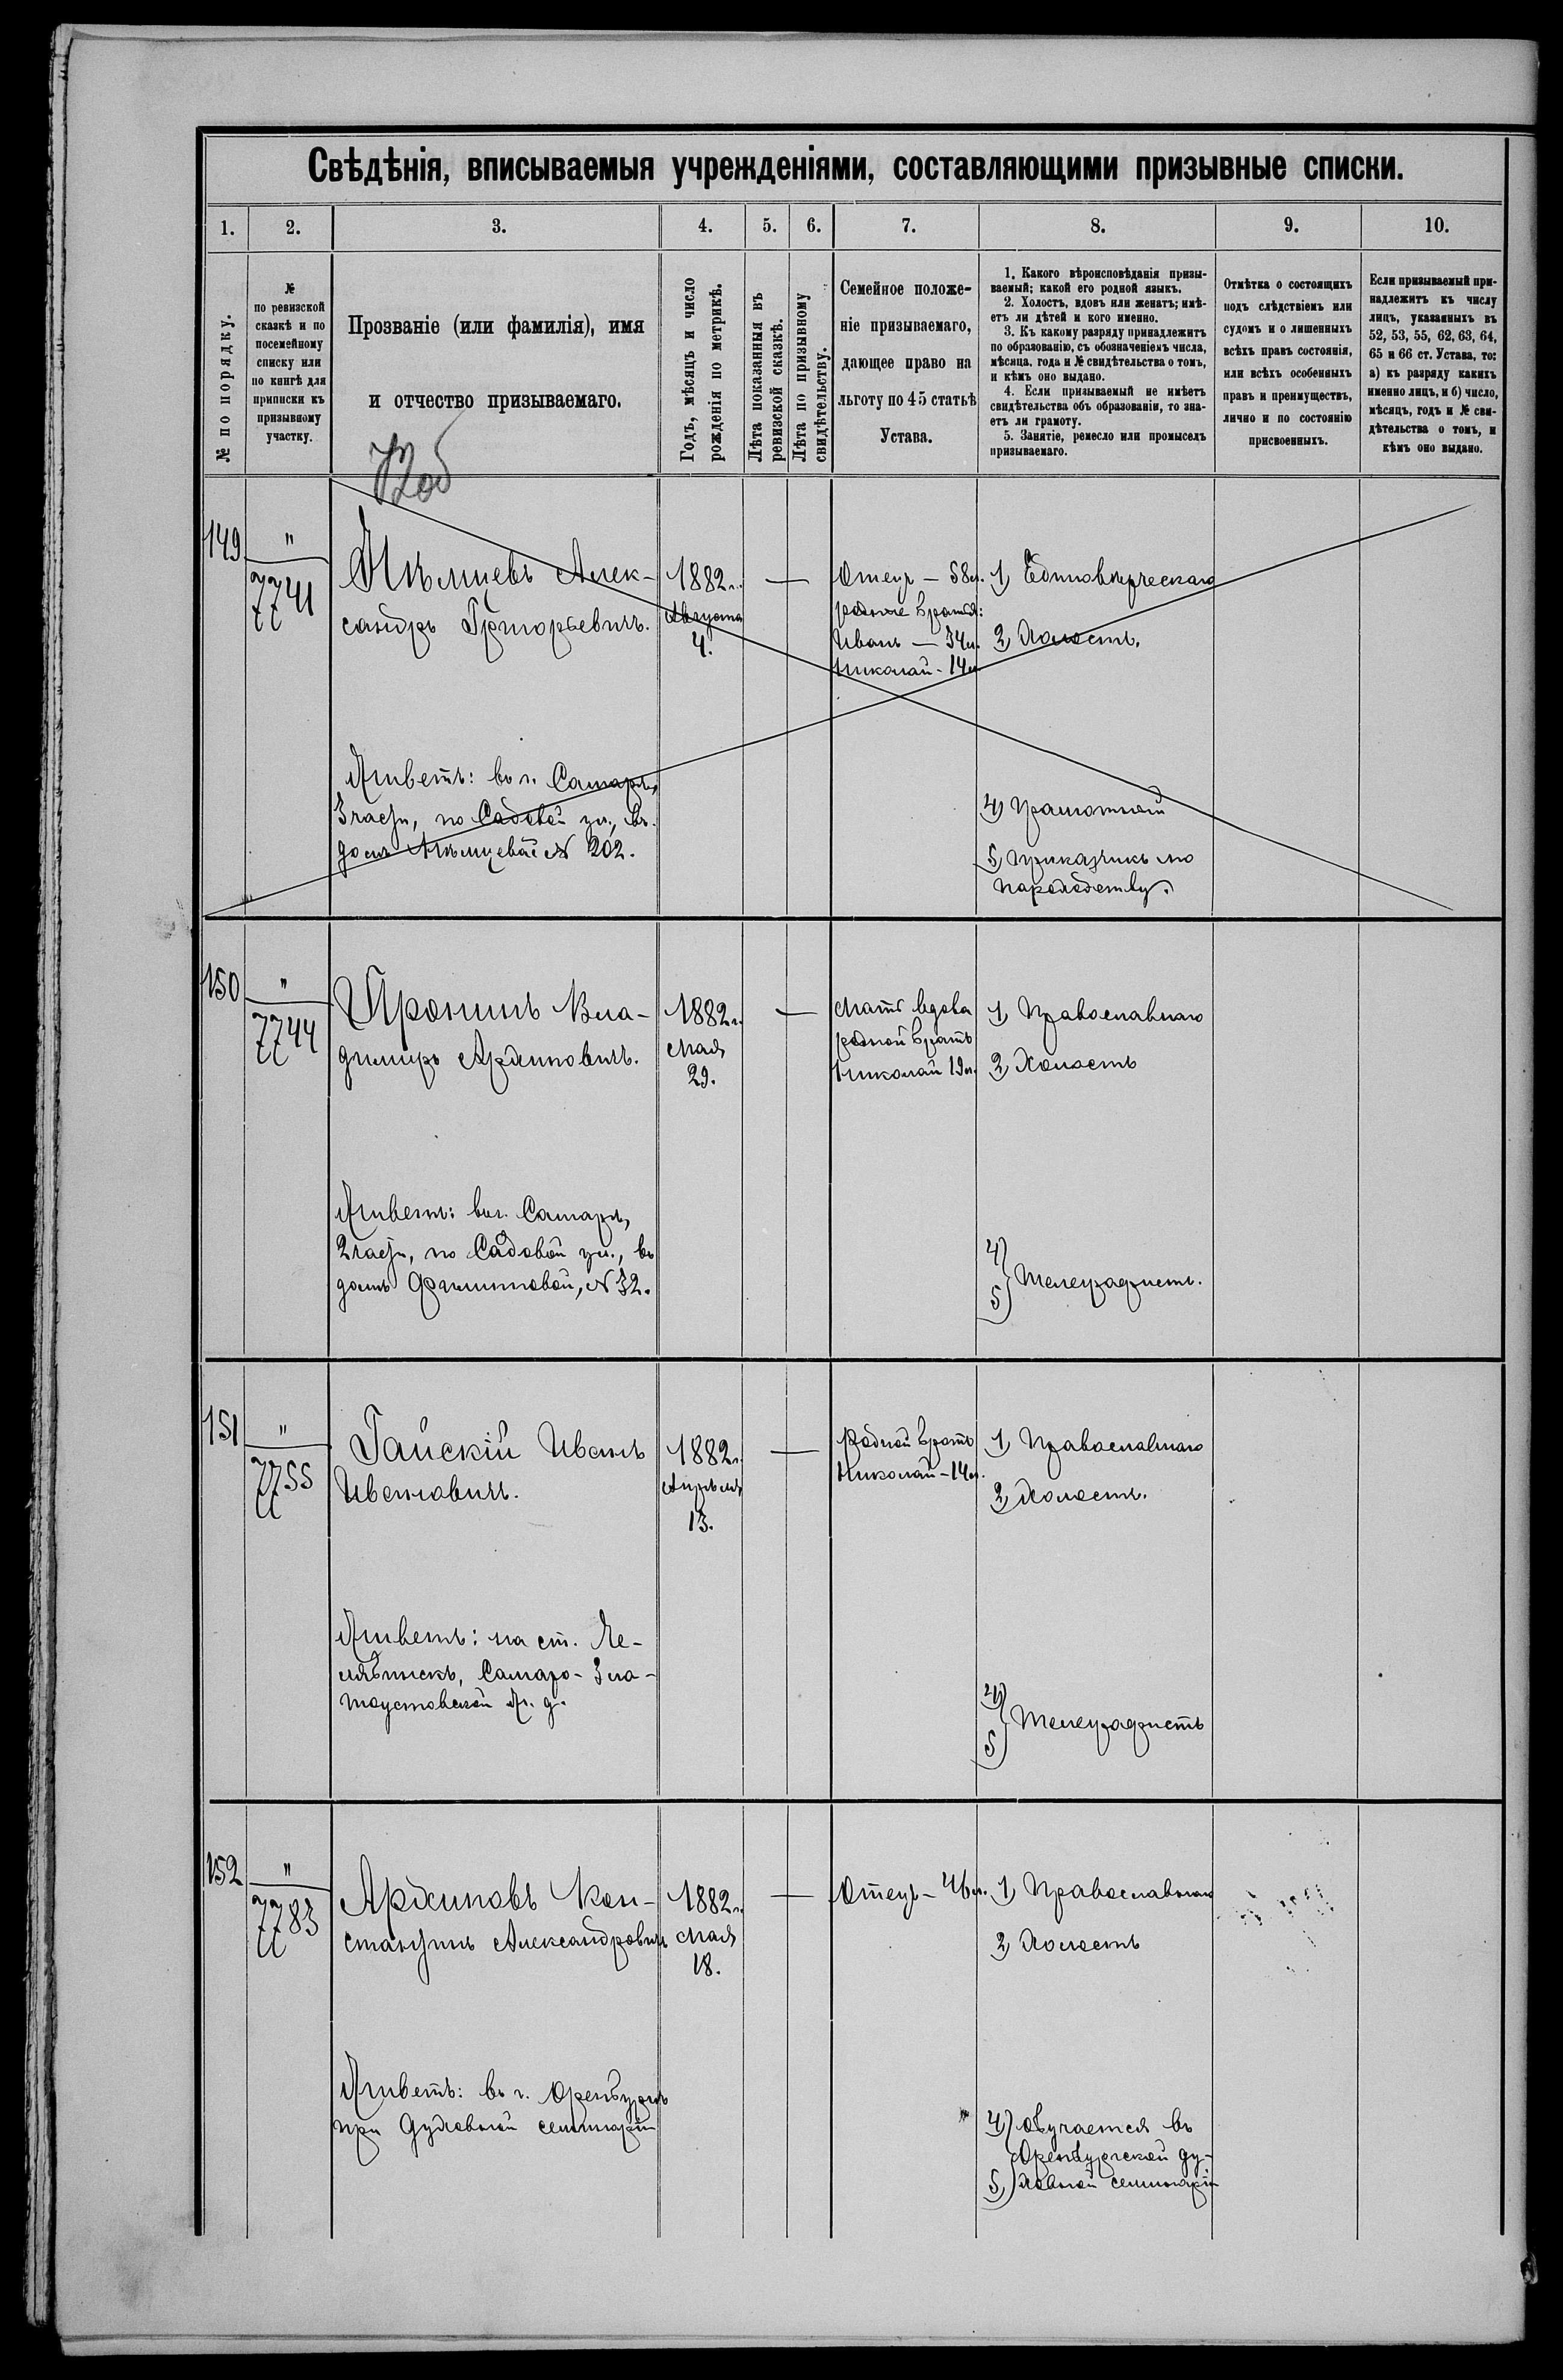 Свѣдѣнія, вписываемыя учрежденіями, составляющими призывные списки.
1. 2. 3. 4. 5. 6. 7. 8. 9. 10.
№ по порядку.
№
по ревизской
сказкѣ и по
посемейному
списку или
по книгѣ для
приписки къ
призывному
участку.
Прозваніе (или фамилія), имя
и отчество призываемаго.
Годъ, мѣсяцъ и число
рожденія по метрикѣ.
Лѣта показанныя въ
ревизской сказкѣ.
Лѣта по призывному
свидѣтельству.
Семейное положе-
ніе призываемаго,
дающее право на
льготу по 45 статьѣ
Устава.
1. Какого вѣроисповѣданія призы-
ваемый; какой его родной языкъ.
2. Холостъ, вдовъ или женатъ; имѣ-
етъ ли дѣтей и кого именно.
3. Къ какому разряду принадлежитъ
по образованію, съ обозначеніемъ числа,
мѣсяца, года и № свидѣтельства о томъ,
и кѣмъ оно выдано.
4. Если призываемый не имѣетъ
свидѣтельства объ образованіи, то зна-
етъ ли грамоту.
5. Занятіе, ремесло или промыселъ
призываемаго.
Отмѣтка о состоящихъ
подъ слѣдствіемъ или
судомъ и о лишенныхъ
всѣхъ правъ состоянія,
или всѣхъ особенныхъ
правъ и преимуществъ,
лично и по состоянію
присвоенныхъ.
Если призываемый при-
надлежитъ къ числу
лицъ, указанныхъ въ
52, 53, 55, 62, 63, 64,
65 и 66 ст. Устава, то:
а) къ разряду какихъ
именно лицъ, и б) число,
мѣсяцъ, годъ и № сви-
дѣтельства о томъ, и
кѣмъ оно выдано.
149
"
7741
Нѣмцевъ Алек-
сандръ Григорьевичъ.
Живетъ: въ г. Самарѣ,
3 части, по Садовой ул., въ
домѣ Нѣмцевой № 202.
1882 г.
Августа
4.
—
Отецъ — 58 л.
родные братья:
Иванъ — 34 л.
Николай - 14 л.
1) Единовѣрческаго
2) Холостъ.
4) Грамотный
5) Приказчикъ по
пароходству.
150
"
7744
Пронинъ Вла-
димиръ Архиповичъ.
Живетъ: въ г. Самарѣ,
2 части, по Садовой ул., въ
домѣ Филипповой, № 32.
1882 г.
Мая
29.
—
Мать вдова
родной братъ
Николай 19 л.
1) Православнаго
2) Холостъ
4)
5) Телеграфистъ.
151
"
7755
Гайскій Иванъ
Ивановичъ.
Живетъ: на ст. Че-
лябинскъ, Самаро-Зла-
тоустовской ж. д.
1882 г.
Апрѣля
13.
—
Родной братъ
Николай - 14 л.
1) Православнаго
2) Холостъ.
4)
5) Телеграфистъ
152
"
7783
Архиповъ Кон-
стантинъ Александровичъ
Живетъ: въ г. Оренбургѣ
при Духовной семинаріи
1882 г.
Мая
18.
—
Отецъ - 46 л.
1) Православнаго
2) Холостъ
4) обучается въ
Оренбургской ду-
5) ховной семинаріи